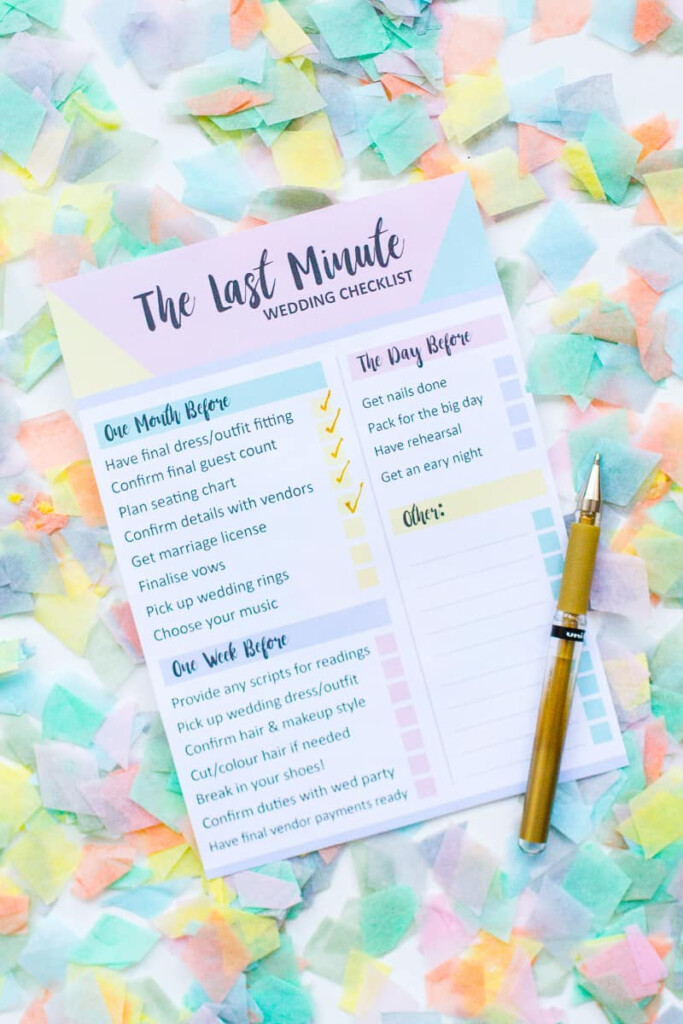 The Last Minute
WEDDING CHECKLIST
One Month Before
Have final dress/outfit fitting
Confirm final guest count
Plan seating chart
Confirm details with vendors
Get marriage license
Finalise vows
Pick up wedding rings
Choose your music
One Week Before
Provide any scripts for readings
Pick up wedding dress/outfit
Confirm hair & makeup style
Cut/colour hair if needed
Break in your shoes!
Confirm duties with wed party
Have final vendor payments ready
The Day Before
Get nails done
Pack for the big day
Have rehearsal
Get an eary night
Other:
uni